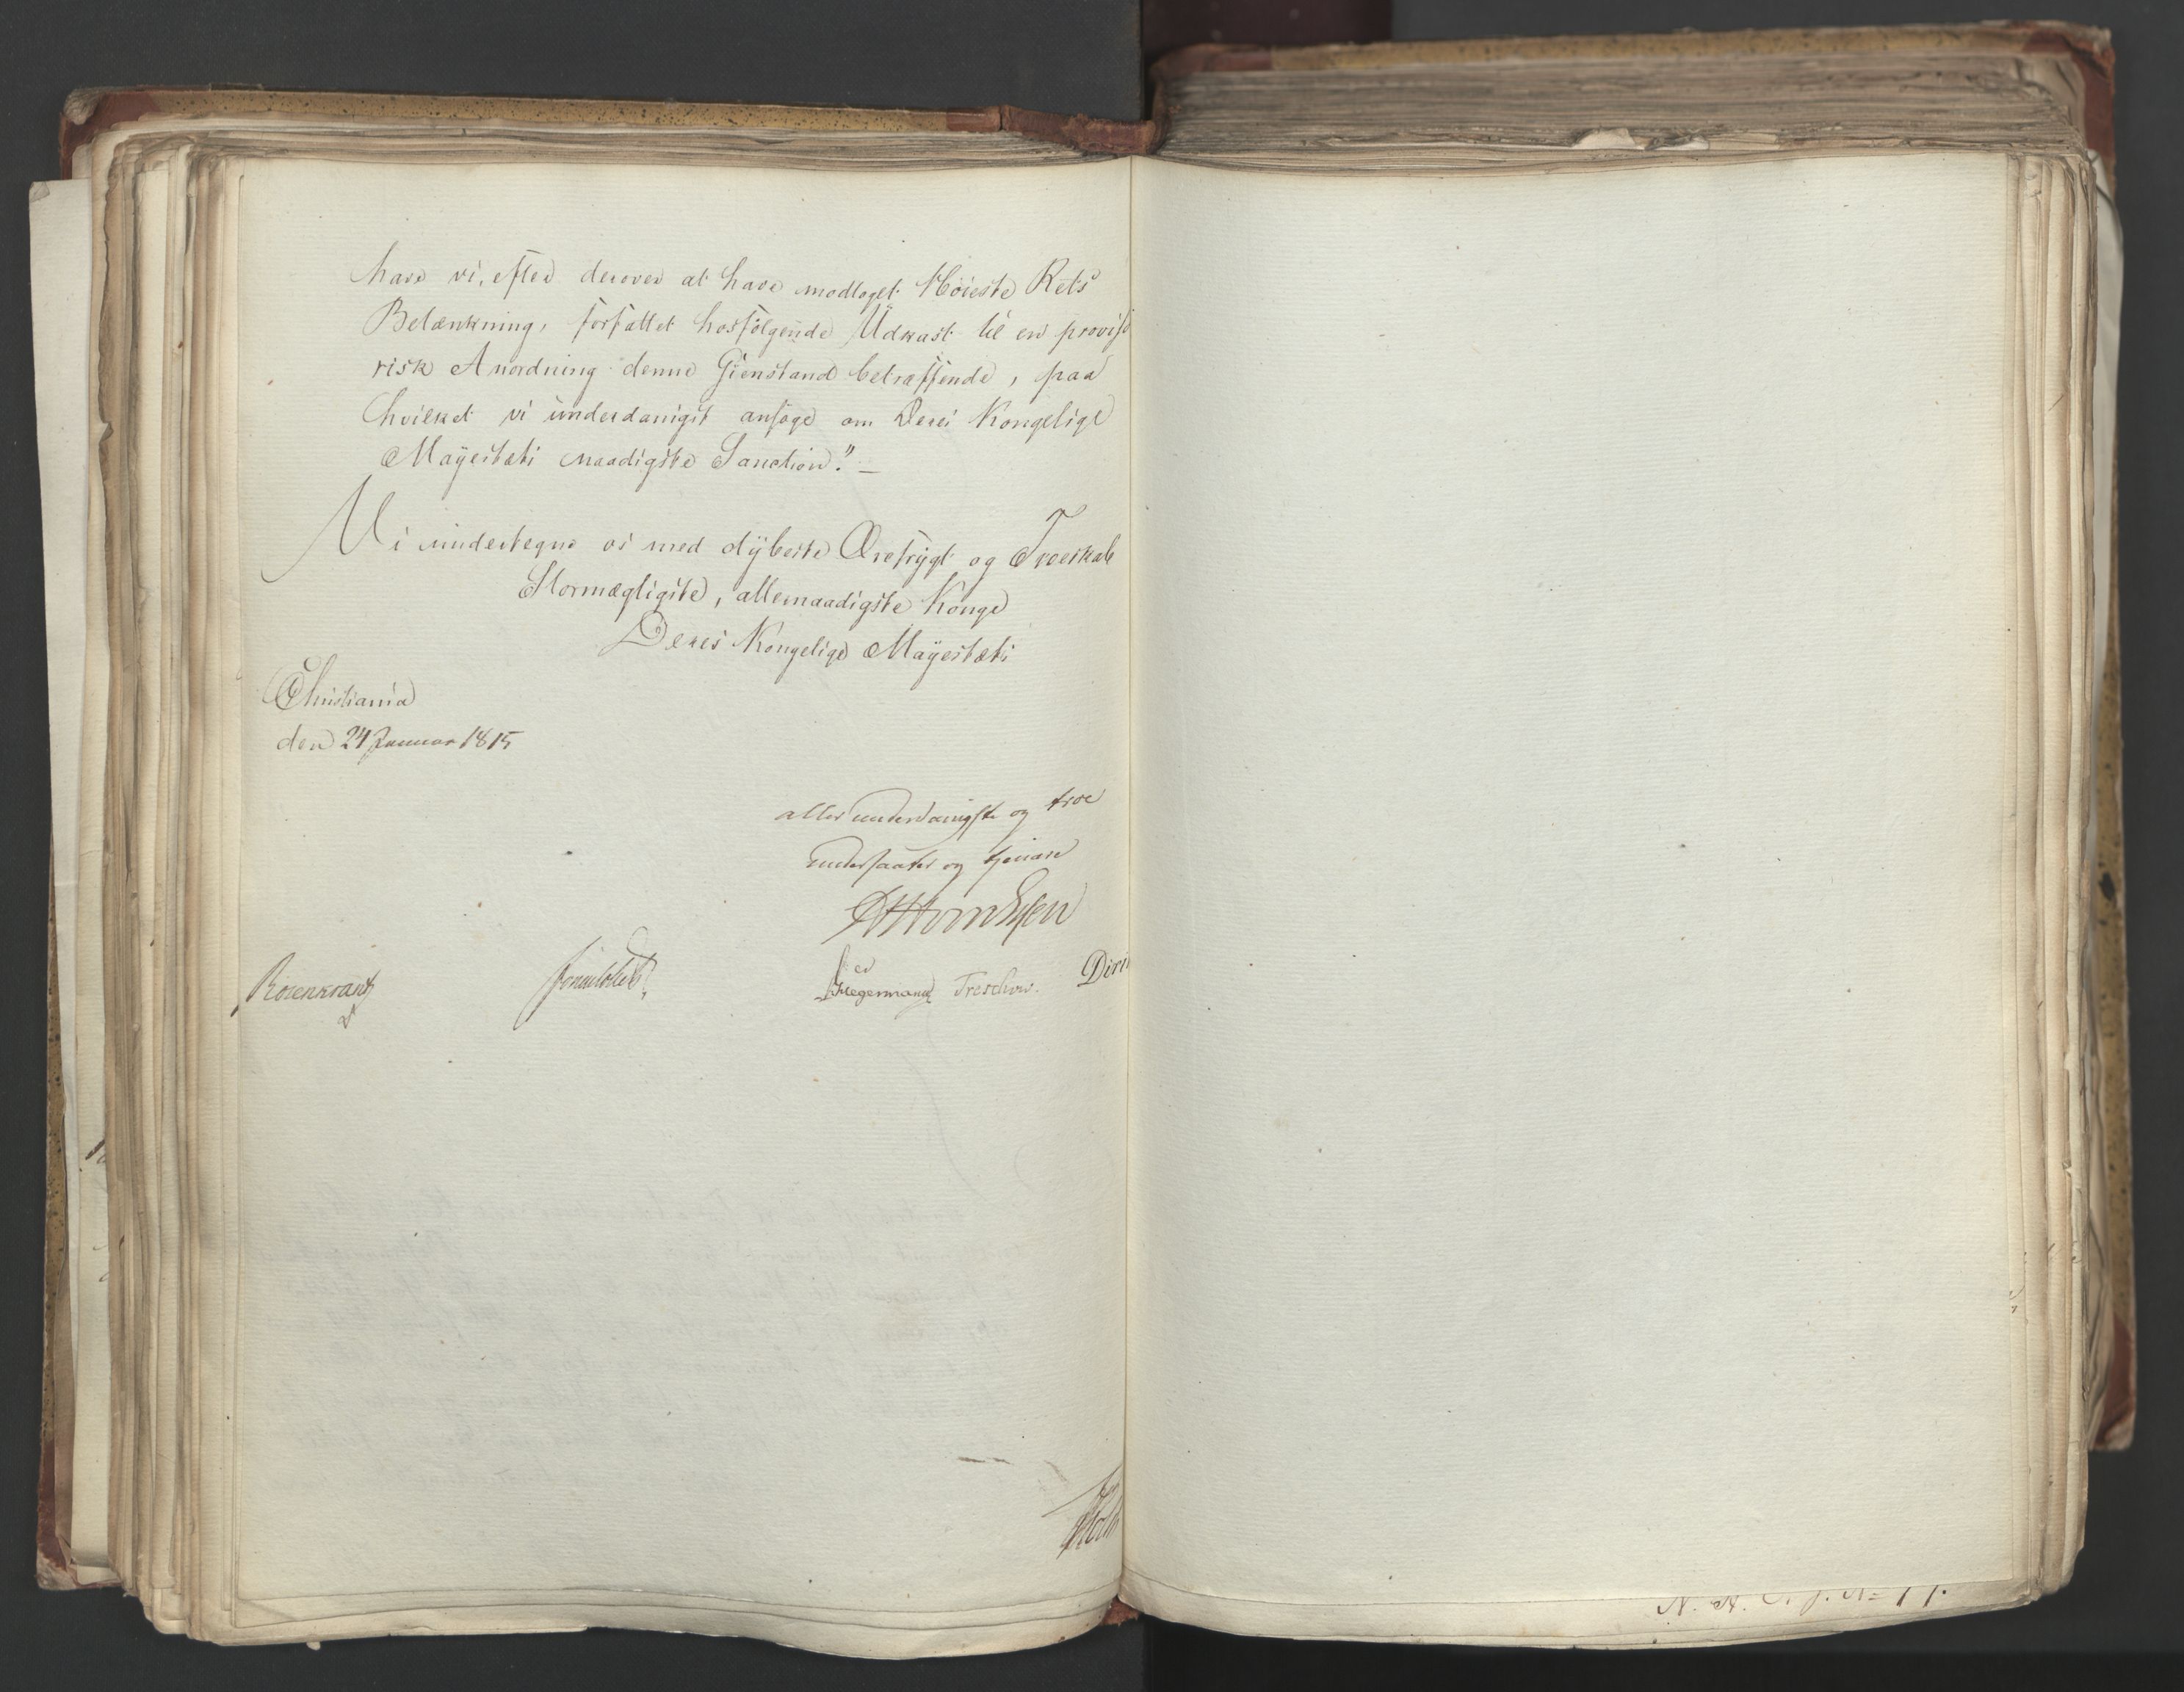 have vi, efter derover at have modtaget Høieste Rets
Betænkning, forfattet hosfølgende Udkast til en proviso
risk Anordning denne Gienstand betræffende, paa
hvilket vi underdanigst ansøge om Deres Kongelige
Mayestæts naadigste Sanction." _
Vi undertegne os med dybeste Ærefrygt og Troeskab
Stormægtigste, allernaadigste Konge
Deres Kongelige Mayestæts
Christiania
den 24 Januar 1815
allerunderdanigste og troe
undersaatter og tjenere
Rosenkrantz
Hegermann Treschow. Diri